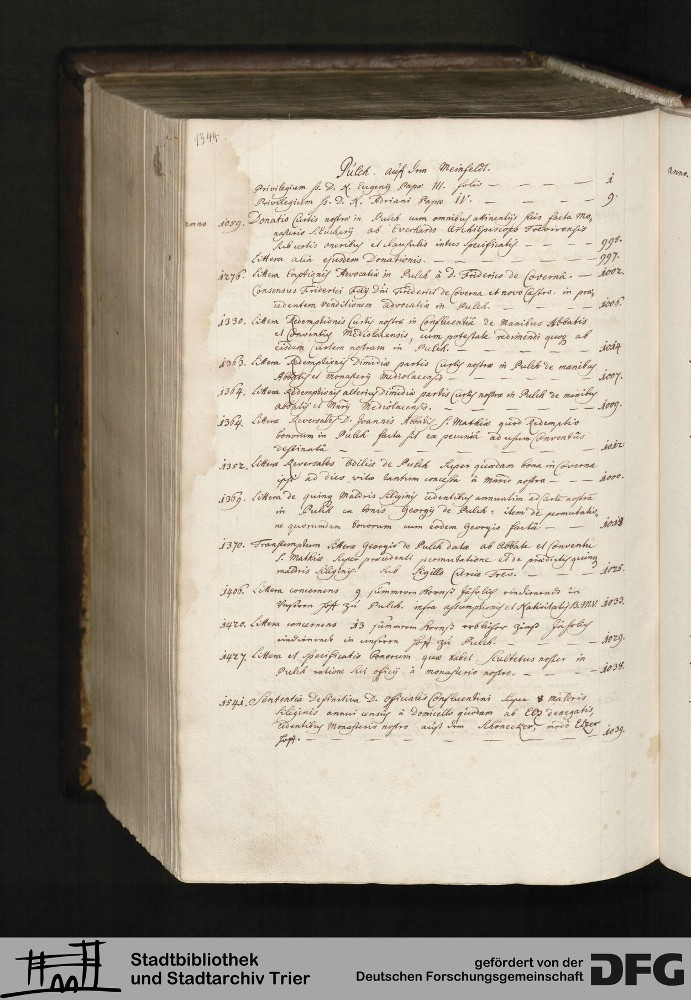 1344.
Pulch. auff dem Meinfeldt.
Privilegium ss. D. N. Eugenij Papæ III. folio — — — — 1
Privilegium ss. D. N. Adriani Papæ IV. — — — — 9.
anno 1059. Donatio Curtis nostræ in Pulch cum omnibus attinentijs suis facta Mo,
nasterio S. Eucharij ab Everhardo Archiepiscopo Trevirensi
sub certis oneribus et clausulis intus specificatis — — — 998.
Littera alia ejusdem Donationis. — — — — 997.
1276. Littera Emptionis Advocatiæ in Pulch à D. Friderico de Coverna. — 1002.
Consensus Friderici Filij Dni Friderici de Coverna et novo Castro. in præ,
cedentem venditionem advocatiæ in Pulch. — — — 1006.
1330. Littera Redemptionis Curtis nostræ in Confluentia de Manibus Abbatis
et Conventus Mediolacensis, cum potestate redimendi quoq ab
eisdem curtem nostram in Pulch. — — — 1014
1363. Littera Redemptionis Dimidiæ partis Curtis nostræ in Pulch de manibus
Abbatis et monasterij Mediolacensis — — — 1007.
1364. Littera Redemptionis alterius Dimidiæ partis Curtis nostræ in Pulch de manibus
abbatis et Mrij Mediolacensis. — — — 1009.
1364. Litteræ Reversales D. Joannis Abbatis S. Mathiæ quod Redemptio
bonorum in Pulch facta sit ex pecunia ad usum Conventus
destinata — — — 1012
1352. Litteræ Reversales Odiliæ de Pulch super quasdam bona in Coverna
ipsi ad dies vitæ tantum concessa à Mrio nostro — — — 1000.
1369. Littera de quinq Maldris siliginis cedentibus annuatim ad curtem nostram
in Pulch ex bonis Georgij de Pulch: item de permutatio,
ne quorumdam bonorum cum eodem Georgio facta — — 1018
1370. Transsumptum Litteræ Georgij de Pulch data ab Abbate et Conventu
S. Mathiæ super præcedenti permutatione et de prædictis quinq
maldris siliginis. sub Sigillo Curiæ Trev. — — — 1025.
1406. Littera concernens 9 sümmern Kornß jährlich eindienend in
Unseren Hoff zu Pulch. infra assumptionis et Nativitatis B.M.V. 1033.
1420. Littera concernens 13 sümmern Kornß erblicher Zinß jährlich
eindienend in unseren Hoff zu Pulch. — — — 1029.
1427. Littera et specificatio Bonorum quæ habet Scultetus noster in
Pulch ratione sui officij à monasterio nostro. — — — 1038.
1541. Sententia Definitiva D. Officialis Confluentini super 8 maldris
siliginis annui census à domicello quodam ab Elz denegatis,
cedentibus Monasterio nostro auß dem Schönecker, modo Elzer
Hoff. — — — 1039.
anno.
Stadtbibliothek
und Stadtarchiv Trier
gefördert von der
Deutschen Forschungsgemeinschaft
DFG